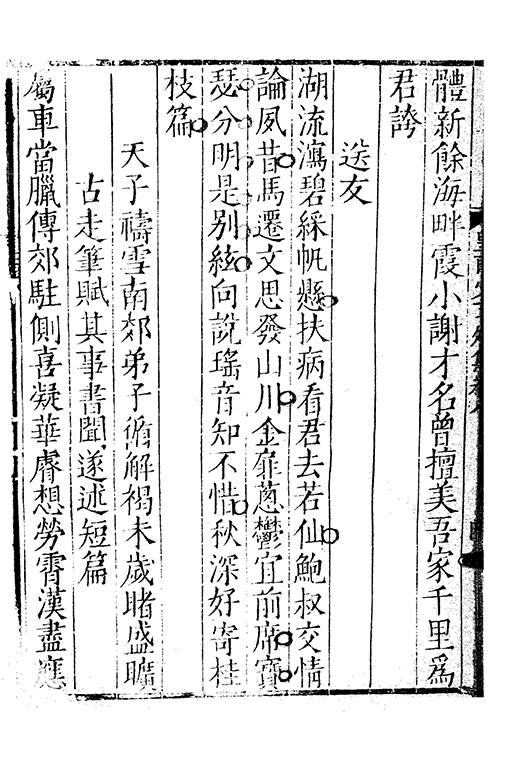 體新餘海畔霞小謝才名曾擅美吾家千里爲
君誇
送友
湖流瀉碧綵帆懸扶病看君去若仙鮑叔交情
論夙昔馬遷文思發山川金靡蔥鬱宜前席寶
瑟分明是別絃向說瑤音知不惜秋深好寄桂
枝篇
天子禱雪南郊弟子循解褐未歲睹盛曠
古走筆賦其事書聞遂述短篇
屬車當臘傳郊駐側喜凝華膚想勞霄漢盡應